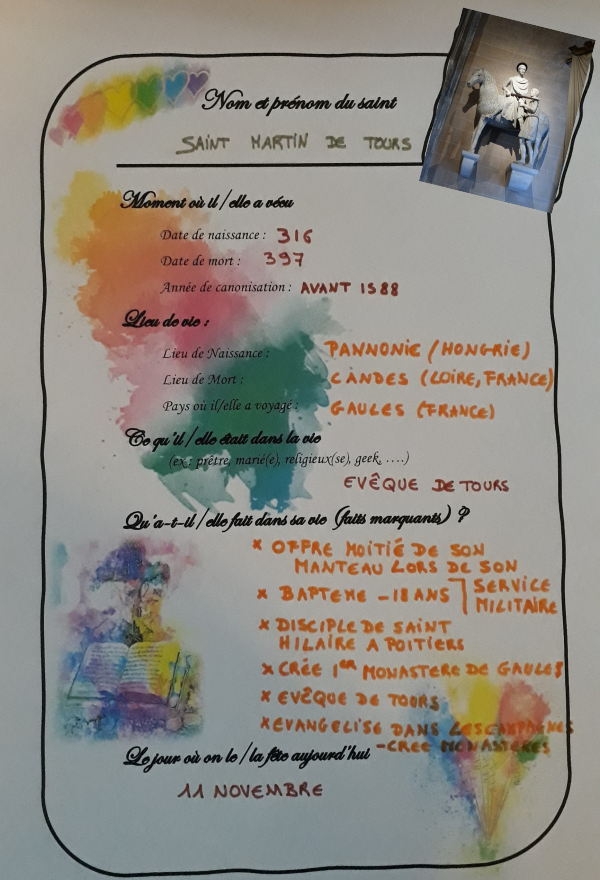 Nom et prénom du saint
SAINT MARTIN DE TOURS
Moment où il/elle a vécu
Date de naissance : 316
Date de mort : 397
Année de canonisation : AVANT 1588
Lieu de vie :
Lieu de Naissance : PANNONIE (HONGRIE)
Lieu de Mort : CANDES (LOIRE, FRANCE)
Pays où il/elle a voyagé : GAULES (FRANCE)
Ce qu'il/elle était dans la vie
(ex : prêtre, marié(e), religieux(se), geek, ....)
EVÊQUE DE TOURS
Qu'a-t-il/elle fait dans sa vie (faits marquants) ?
x OFFRE MOITIÉ DE SON
MANTEAU LORS DE SON
SERVICE
x BAPTEME - 18 ANS
MILITAIRE
x DISCIPLE DE SAINT
HILAIRE A POITIERS
x CRÉE 1ER MONASTERE DE GAULES
x EVÊQUE DE TOURS
x EVANGELISE DANS LES CAMPAGNES
- CREE MONASTERES
Le jour où on le/la fête aujourd'hui
11 NOVEMBRE